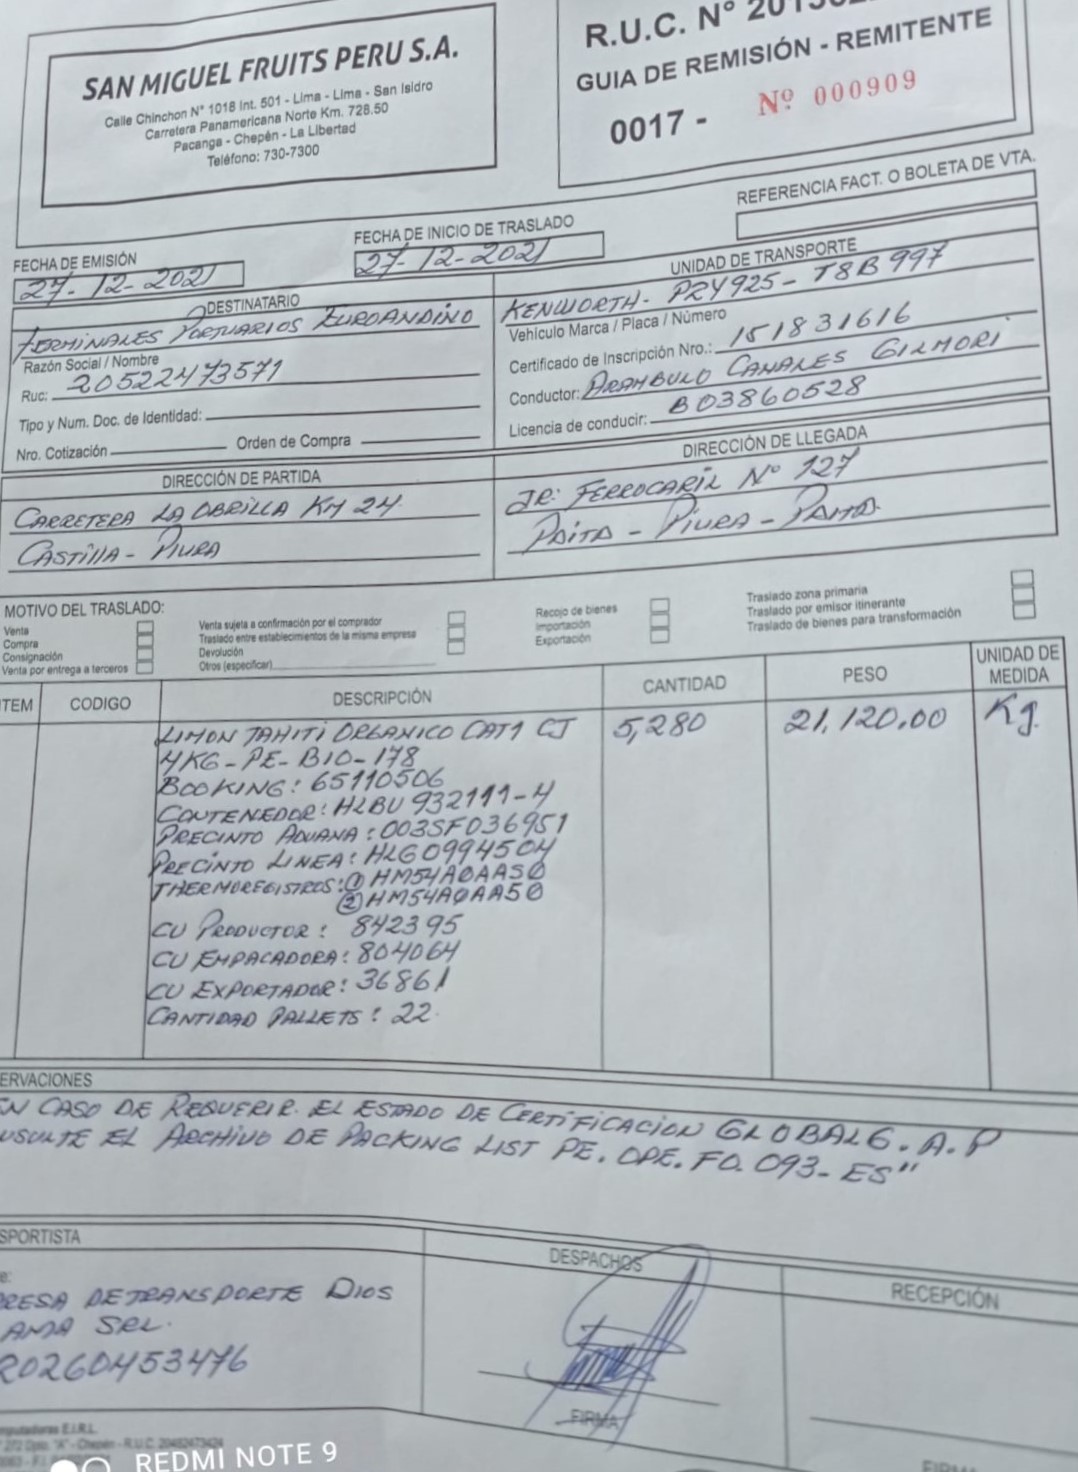 SAN MIGUEL FRUITS PERU S.A.
Calle Chinchon N° 1018 Int. 501 - Lima - Lima - San Isidro
Carretera Panamericana Norte Km. 728.50
Pacanga - Chepén - La Libertad
Teléfono: 730-7300
R.U.C. N°
GUIA DE REMISIÓN - REMITENTE
0017 - Nº 000909
REFERENCIA FACT. O BOLETA DE VTA.
FECHA DE EMISIÓN
27-12-2021
FECHA DE INICIO DE TRASLADO
27-12-2021
DESTINATARIO
TERMINALES PORTUARIOS EUROANDINO
Razón Social / Nombre
Ruc: 20522473571
Tipo y Num. Doc. de Identidad:
Nro. Cotización Orden de Compra
UNIDAD DE TRANSPORTE
KENWORTH- P2Y925- T8B997
Vehículo Marca / Placa / Número
Certificado de Inscripción Nro.: 151831616
Conductor: ARAMBULO CANALES GILMORI
Licencia de conducir: B03860528
DIRECCIÓN DE PARTIDA
CARRETERA LA OBRILLA KM 24.
CASTILLA - PIURA
DIRECCIÓN DE LLEGADA
JR: FERROCARIL Nº 127
PAITA - PIURA - PAITA
MOTIVO DEL TRASLADO:
Venta
Compra
Consignación
Venta por entrega a terceros
Venta sujeta a confirmación por el comprador
Traslado entre establecimientos de la misma empresa
Devolución
Otros (especificar)
Recojo de bienes
Importación
Exportación
Traslado zona primaria
Traslado por emisor itinerante
Traslado de bienes para transformación
TEM CODIGO DESCRIPCIÓN CANTIDAD PESO UNIDAD DE MEDIDA
LIMON TAHITI ORGANICO CAT1 CJ 5,280 21,120.00 Kg.
4KG-PE-BIO-178
BOOKING: 65110506
CONTENEDOR: HLBU 932111-4
PRECINTO ADUANA: 003SF036951
PRECINTO LINEA: HLG0994504
THERMOREGISTROS: ① HM54A0AA50
② HM54A0AA50
CU PRODUCTOR: 842395
CU EMPACADORA: 804064
CU EXPORTADOR: 36861
CANTIDAD PALLETS: 22.
ERVACIONES
EN CASO DE REQUERIR EL ESTADO DE CERTIFICACION GLOBALG.A.P
NSULTE EL ARCHIVO DE PACKING LIST PE.OPE.FO.093-ES"
SPORTISTA
e:
PRESA DE TRANSPORTE DIOS
AMA SRL.
20260453476
DESPACHOS
FIRMA
RECEPCIÓN
FIRMA
mputadoras E.I.R.L.
272 Dpto. "A" - Chepén - R.U.C.
REDMI NOTE 9